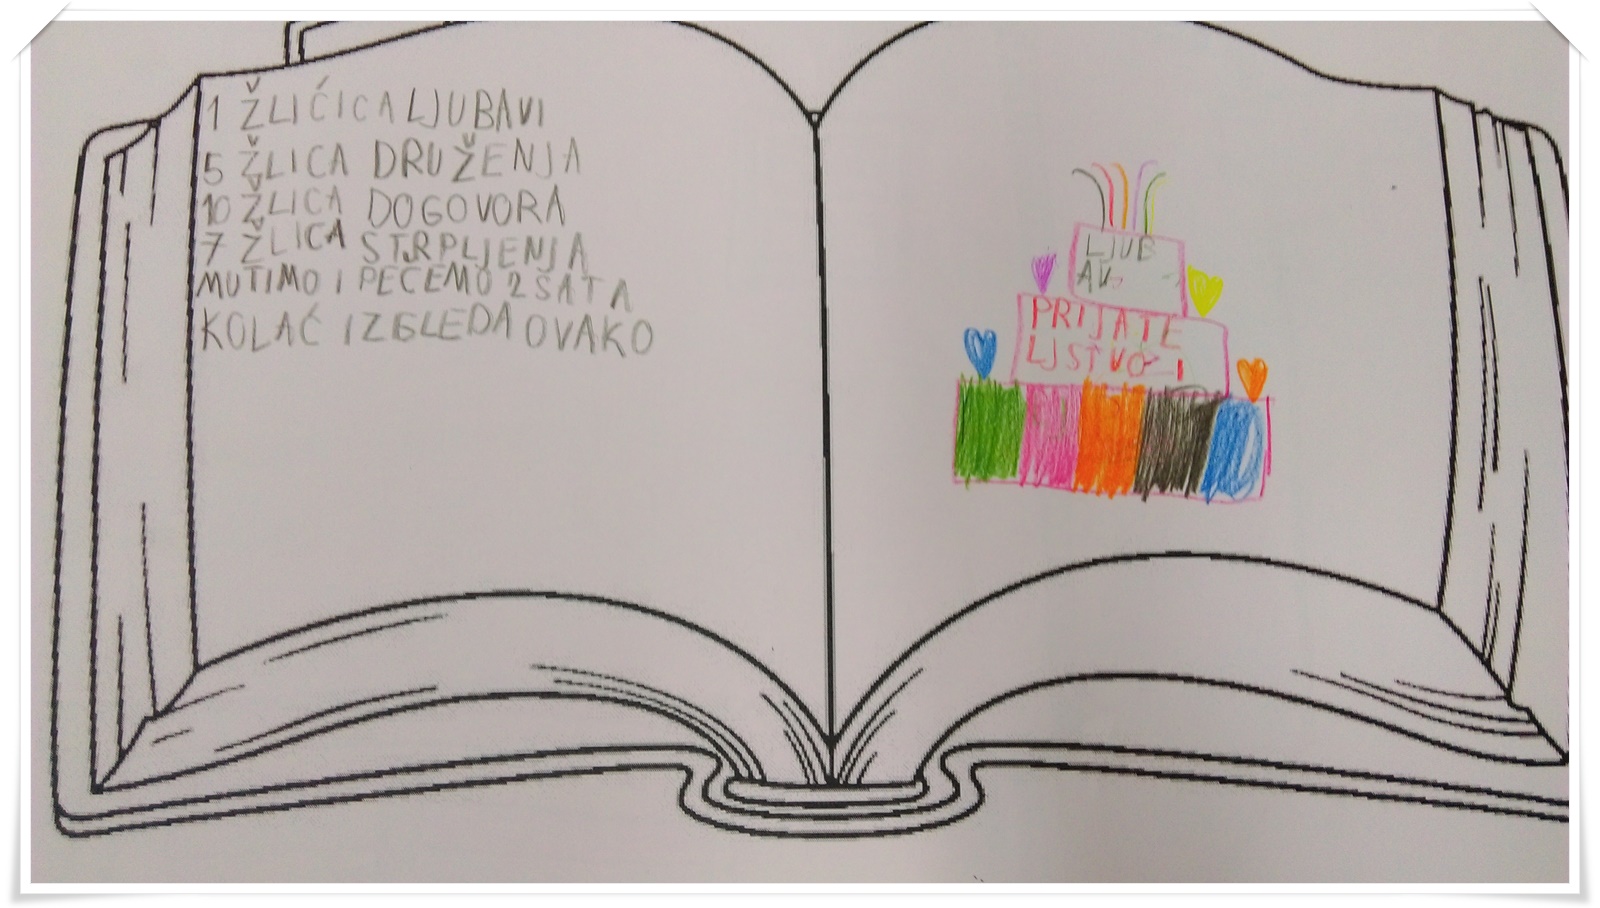 1 ŽLIĆICA LJUBAVI
5 ŽLICA DRUŽENJA
10 ŽLICA DOGOVORA
7 ŽLICA STRPLJENJA
MUTIMO I PEČEMO 2 SATA
KOLAĆ IZGLEDA OVAKO
LJUB
AV
PRIJATE
LJSTVO